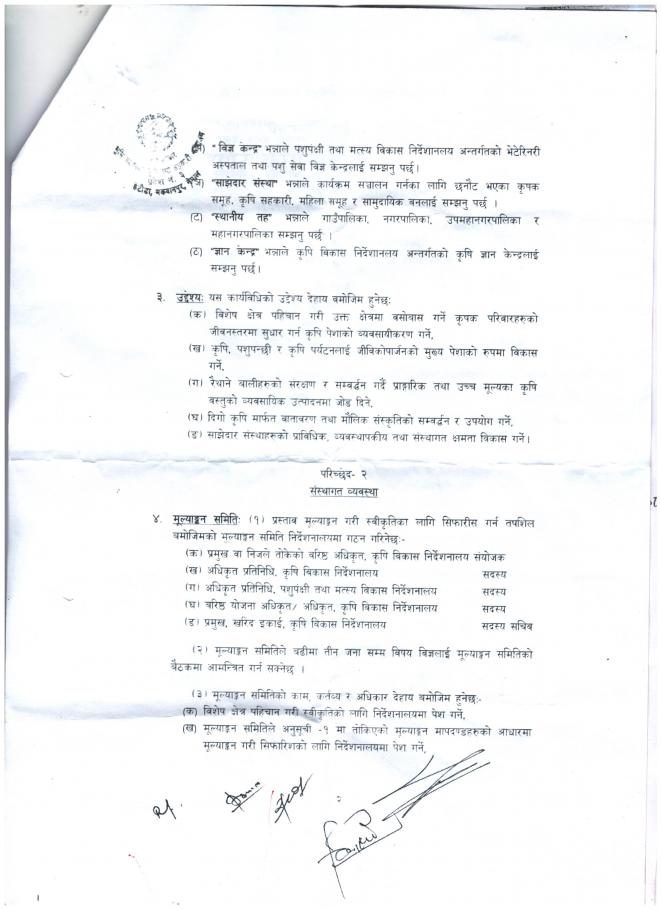 "विज्ञ केन्द्र" भन्नाले पशुपंक्षी तथा मत्स्य विकास निर्देशानलय अन्तर्गतको भेटेरिनरी
अस्पताल तथा पशु सेवा विज्ञ केन्द्रलाई सम्झनु पर्छ।
"साझेदार संस्था" भन्नाले कार्यक्रम सञ्चालन गर्नका लागि छनौट भएका कृषक
समूह, कृषि सहकारी, महिला समूह र सामुदायिक वनलाई सम्झनु पर्छ ।
(ट) "स्थानीय तह" भन्नाले गाउँपालिका, नगरपालिका, उपमहानगरपालिका र
महानगरपालिका सम्झनु पर्छ ।
(ठ) "ज्ञान केन्द्र" भन्नाले कृषि विकास निर्देशानलय अन्तर्गतको कृषि ज्ञान केन्द्रलाई
सम्झनु पर्छ।
३. उद्देश्यः यस कार्यविधिको उद्देश्य देहाय बमोजिम हुनेछः
(क) विशेष क्षेत्र पहिचान गरी उक्त क्षेत्रमा बसोबास गर्ने कृषक परिवारहरुको
जीवनस्तरमा सुधार गर्न कृषि पेशाको व्यवसायीकरण गर्ने,
(ख) कृषि, पशुपन्छी र कृषि पर्यटनलाई जीविकोपार्जनको मुख्य पेशाको रुपमा विकास
गर्ने,
(ग) रैथाने बालीहरुको संरक्षण र सम्वर्द्धन गर्दै प्राङ्गारिक तथा उच्च मूल्यका कृषि
वस्तुको व्यवसायिक उत्पादनमा जोड दिने,
(घ) दिगो कृषि मार्फत बातावरण तथा मौलिक संस्कृतिको सम्वर्द्धन र उपयोग गर्ने,
(ङ) साझेदार संस्थाहरुको प्राविधिक, व्यवस्थापकीय तथा संस्थागत क्षमता विकास गर्ने।
परिच्छेद- २
संस्थागत व्यवस्था
४. मूल्याङ्कन समितिः (१) प्रस्ताव मूल्याङ्कन गरी स्वीकृतिका लागि सिफारीस गर्न तपशिल
बमोजिमको मूल्याङ्कन समिति निर्देशनालयमा गठन गरिनेछः-
(क) प्रमुख वा निजले तोकेको वरिष्ठ अधिकृत, कृषि विकास निर्देशनालय संयोजक
(ख) अधिकृत प्रतिनिधि, कृषि विकास निर्देशनालय सदस्य
(ग) अधिकृत प्रतिनिधि, पशुपंक्षी तथा मत्स्य विकास निर्देशनालय सदस्य
(घ) वरिष्ठ योजना अधिकृत/ अधिकृत, कृषि विकास निर्देशनालय सदस्य
(ङ) प्रमुख, खरिद इकाई, कृषि विकास निर्देशनालय सदस्य सचिव
(२) मूल्याङ्कन समितिले बढीमा तीन जना सम्म विषय विज्ञलाई मूल्याङ्कन समितिको
बैठकमा आमन्त्रित गर्न सक्नेछ ।
(३) मूल्याङ्कन समितिको काम, कर्तव्य र अधिकार देहाय बमोजिम हुनेछः-
(क) विशेष क्षेत्र पहिचान गरी स्वीकृतिको लागि निर्देशनालयमा पेश गर्ने,
(ख) मूल्याङ्कन समितिले अनुसूची -१ मा तोकिएको मूल्याङ्कन मापदण्डहरुको आधारमा
मूल्याङ्कन गरी सिफारिशको लागि निर्देशनालयमा पेश गर्ने,
२